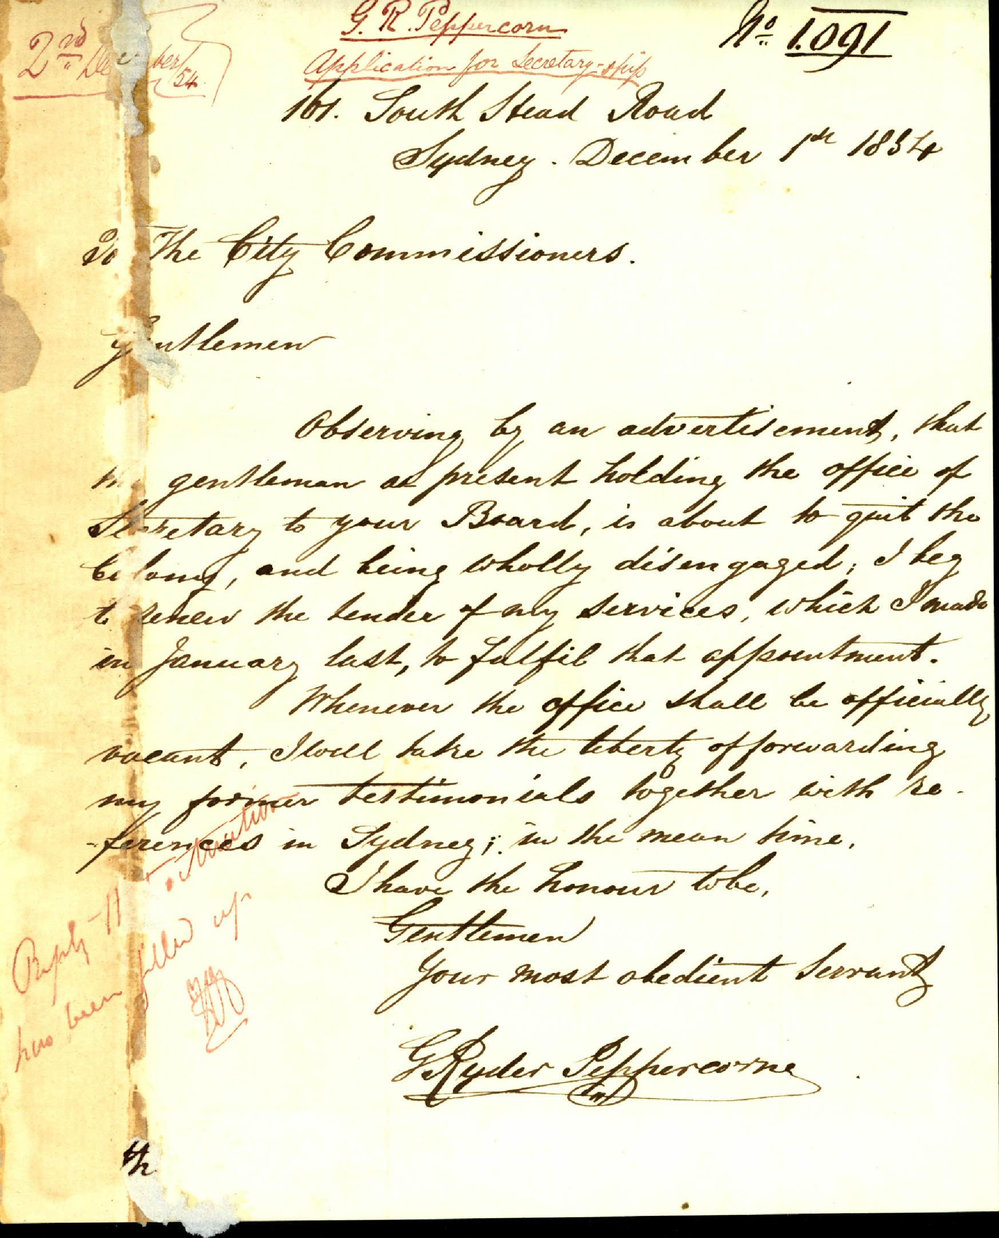 2nd December /54
G. R. Peppercorn
Application for Secretary-ship
No. 1.091
161. South Head Road
Sydney. December 1st 1854
To The City Commissioners.
Gentlemen
Observing by an advertisement, that
the gentleman at present holding the office of
Secretary to your Board, is about to quit the
Colony, and being wholly disengaged; I beg
to renew the tender of my services, which I made
in January last, to fulfil that appointment.
Whenever the office shall be officially
vacant, I will take the liberty of forwarding
my former testimonials together with re-
-ferences in Sydney; in the mean time,
I have the honour to be,
Gentlemen
Your most obedient Servant
G Ryder Peppercorne
Reply situation
has been filled up